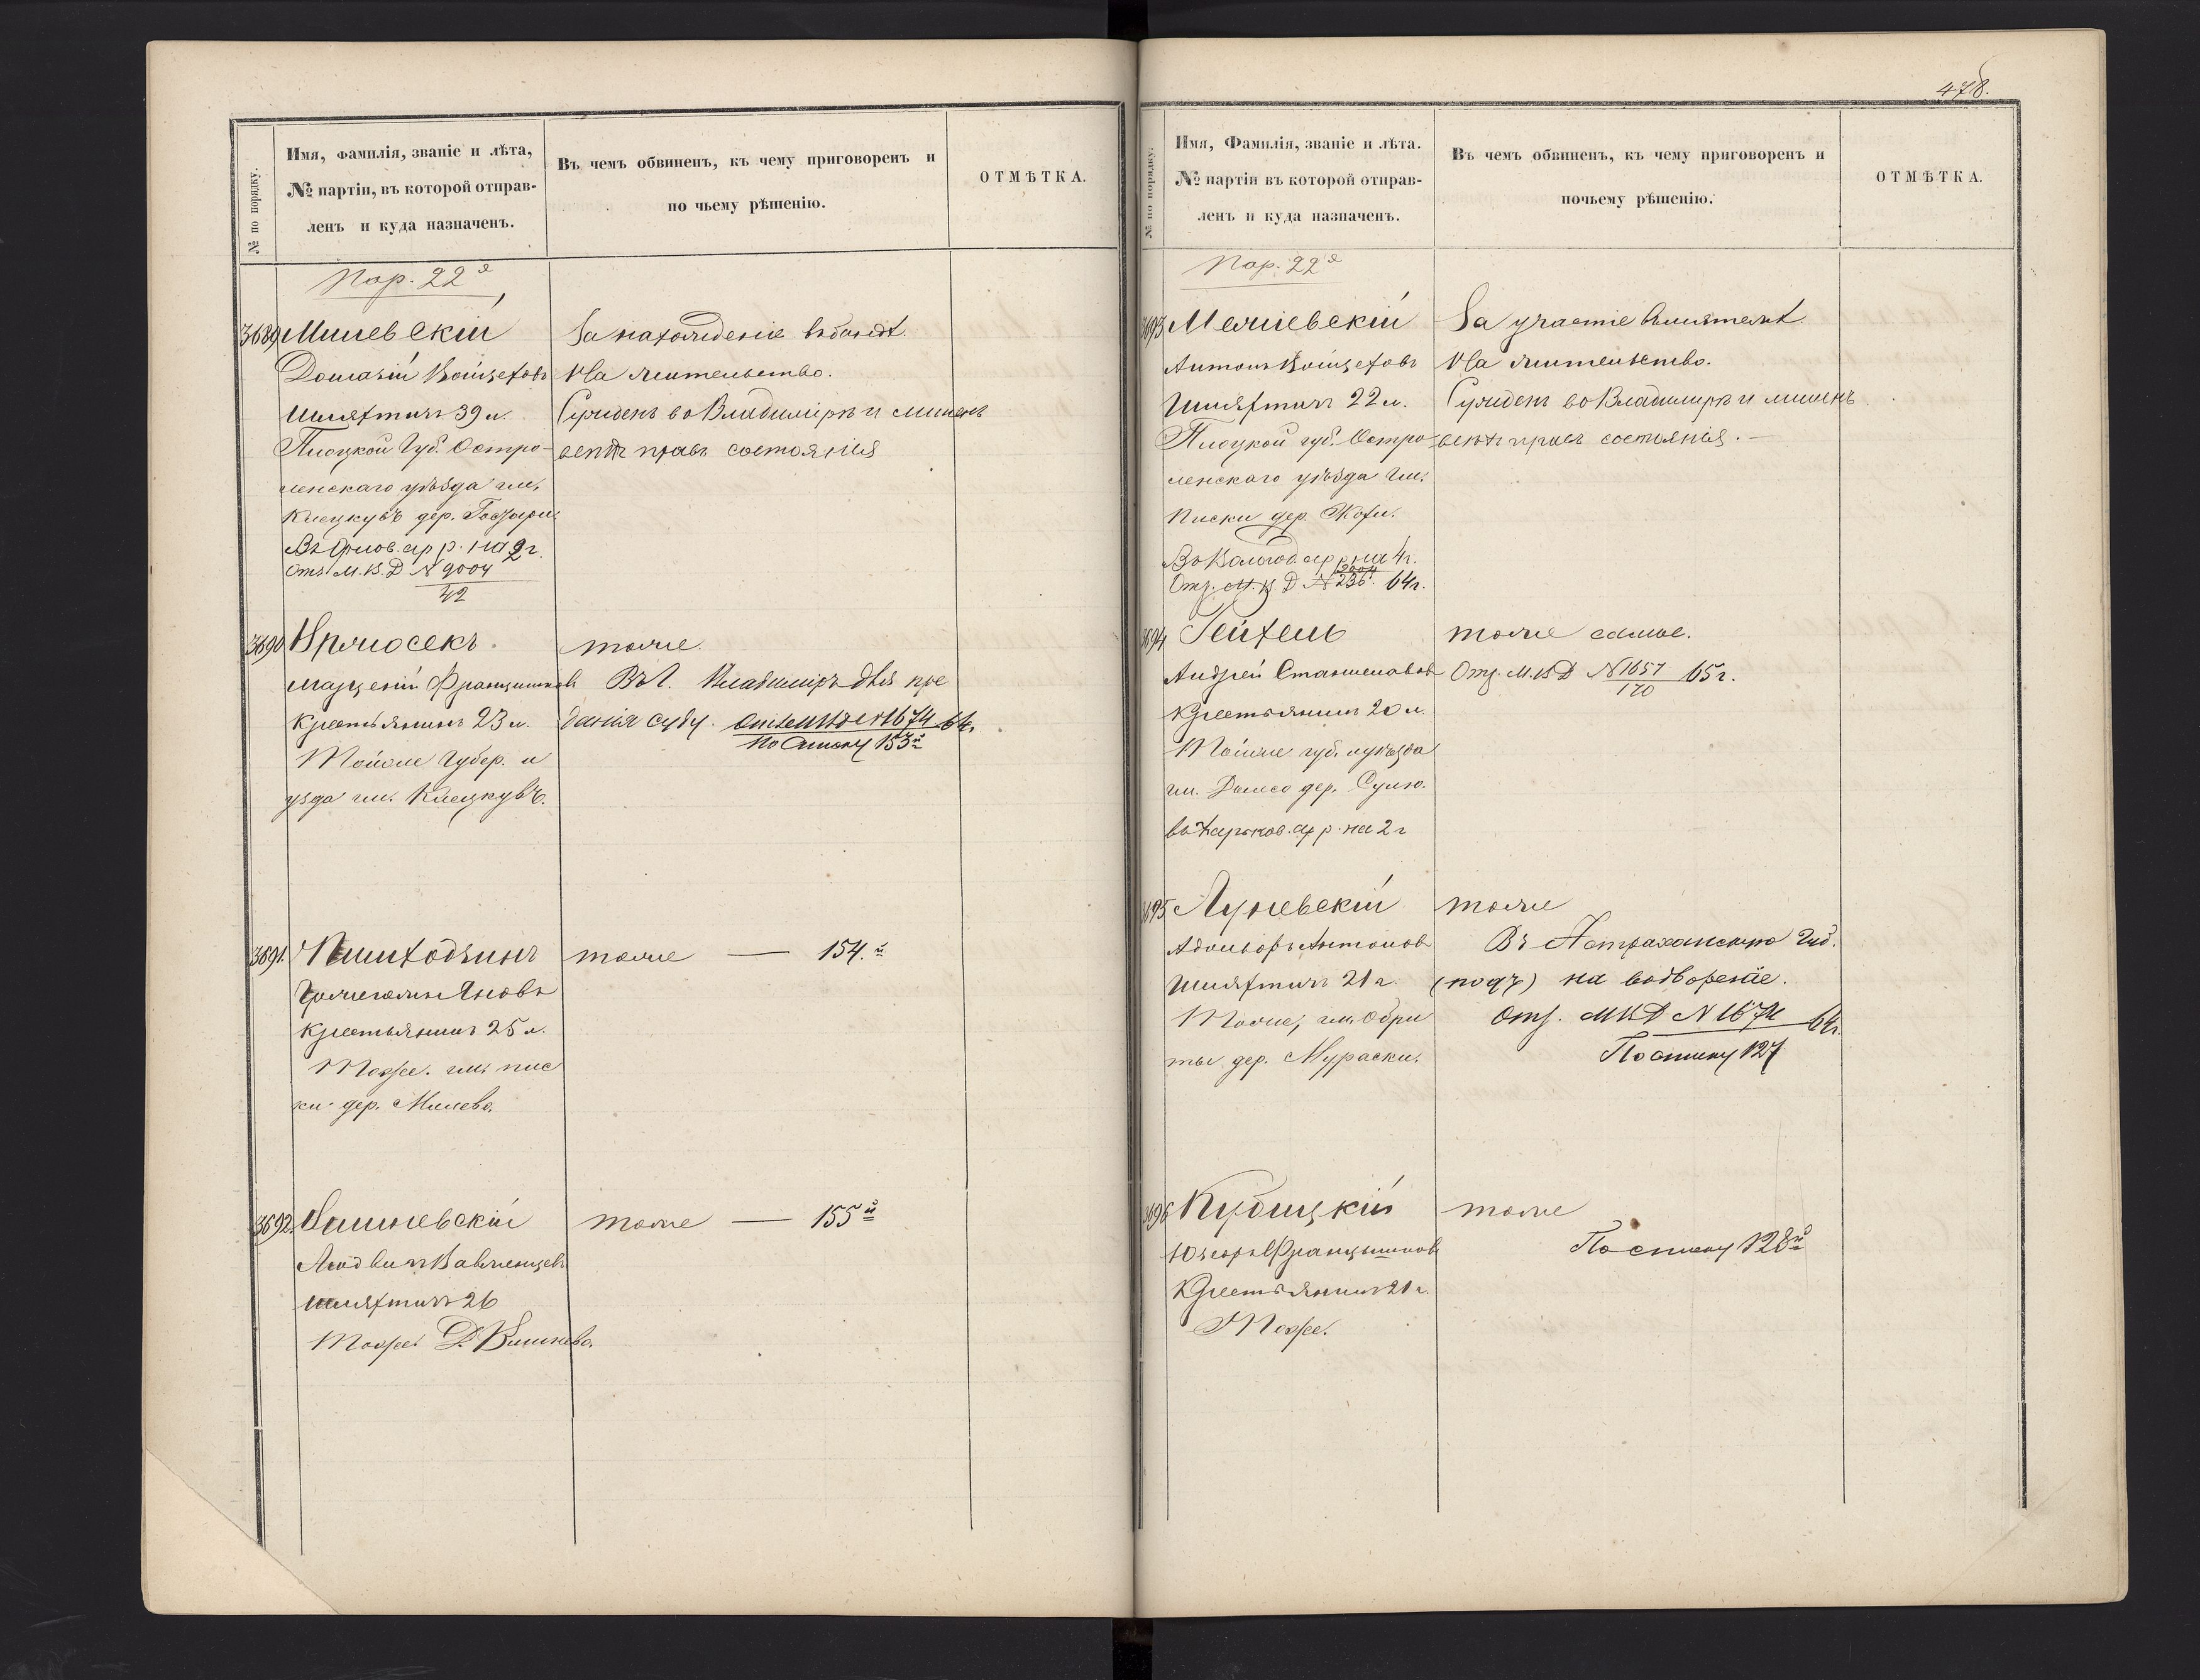 № по порядку.
Имя, фамилія, званіе и лѣта,
№ партіи, въ которой отправ-
ленъ и куда назначенъ.
Въ чемъ обвиненъ, къ чему приговоренъ и
по чьему рѣшенію.
ОТМѢТКА.
Пар. 22я
3689 Милевскій
Войцеховъ
Шляхтичъ 39 л.
Плоцкой Губ. Остро-
ленскаго уѣзда гм.
дер.
Въ Орлов. ар р. на 2 г.
Отз М.В.Д № 9004
42
За нахожденіе въ бандѣ.
На жительство.
Сужденъ во Владимірѣ и лишенъ
всѣхъ правъ состоянія
3690
Францишковъ
Крестьянинъ 23 л.
Тойже Губер. и
уѣзда гм.
тоже.
Въ г. Владиміръ для пре
данія суду. № 1674 64 г.
По списку 153й
3691.
Яновъ
Крестьянинъ 25 л.
Тоже. гм. Пис
ки дер. Милево.
тоже — 154.й
3692.
Людвигъ Вавженцевъ
шляхтичъ 26
Тоже. Д. Вишнево.
тоже — 155й
478.
№ по порядку.
Имя, Фамилія, званіе и лѣта.
№ партіи въ которой отправ-
ленъ и куда назначенъ.
Въ чемъ обвиненъ, къ чему приговоренъ и
почьему рѣшенію.
ОТМѢТКА.
Пар. 22я
3693
Антонъ Войцеховъ
Шляхтичъ 22 л.
Плоцкой губ. Остро
ленскаго уѣзда гм.
Писки дер.
Въ Вологод. ар р на 4 г.
Отз. М.В.Д № 236. 64 г.
За участіе въ мятежѣ.
На жительство.
Сужденъ во Владимірѣ и лишенъ
всѣхъ правъ состоянія. —
3694
Андрей Станиславовъ
Крестьянинъ 20 л.
Тойже губ. и уѣзда
гм. дер.
въ Харьков. ар р. на 2 г
тоже самое.
Отз. М.В.Д № 1657 65 г.
170
3695
Адольфъ Антоновъ
Шляхтичъ 21 г.
Тоже, гм. Обри
ты дер. Мураски.
тоже
Въ Астраханскую Губ.
на водвореніе.
Отз. МВД № 1674 64 г.
По списку 127
3696 Кубицкій
Францишковъ
Крестьянинъ 21 г.
Тоже.
тоже
По списку 128й